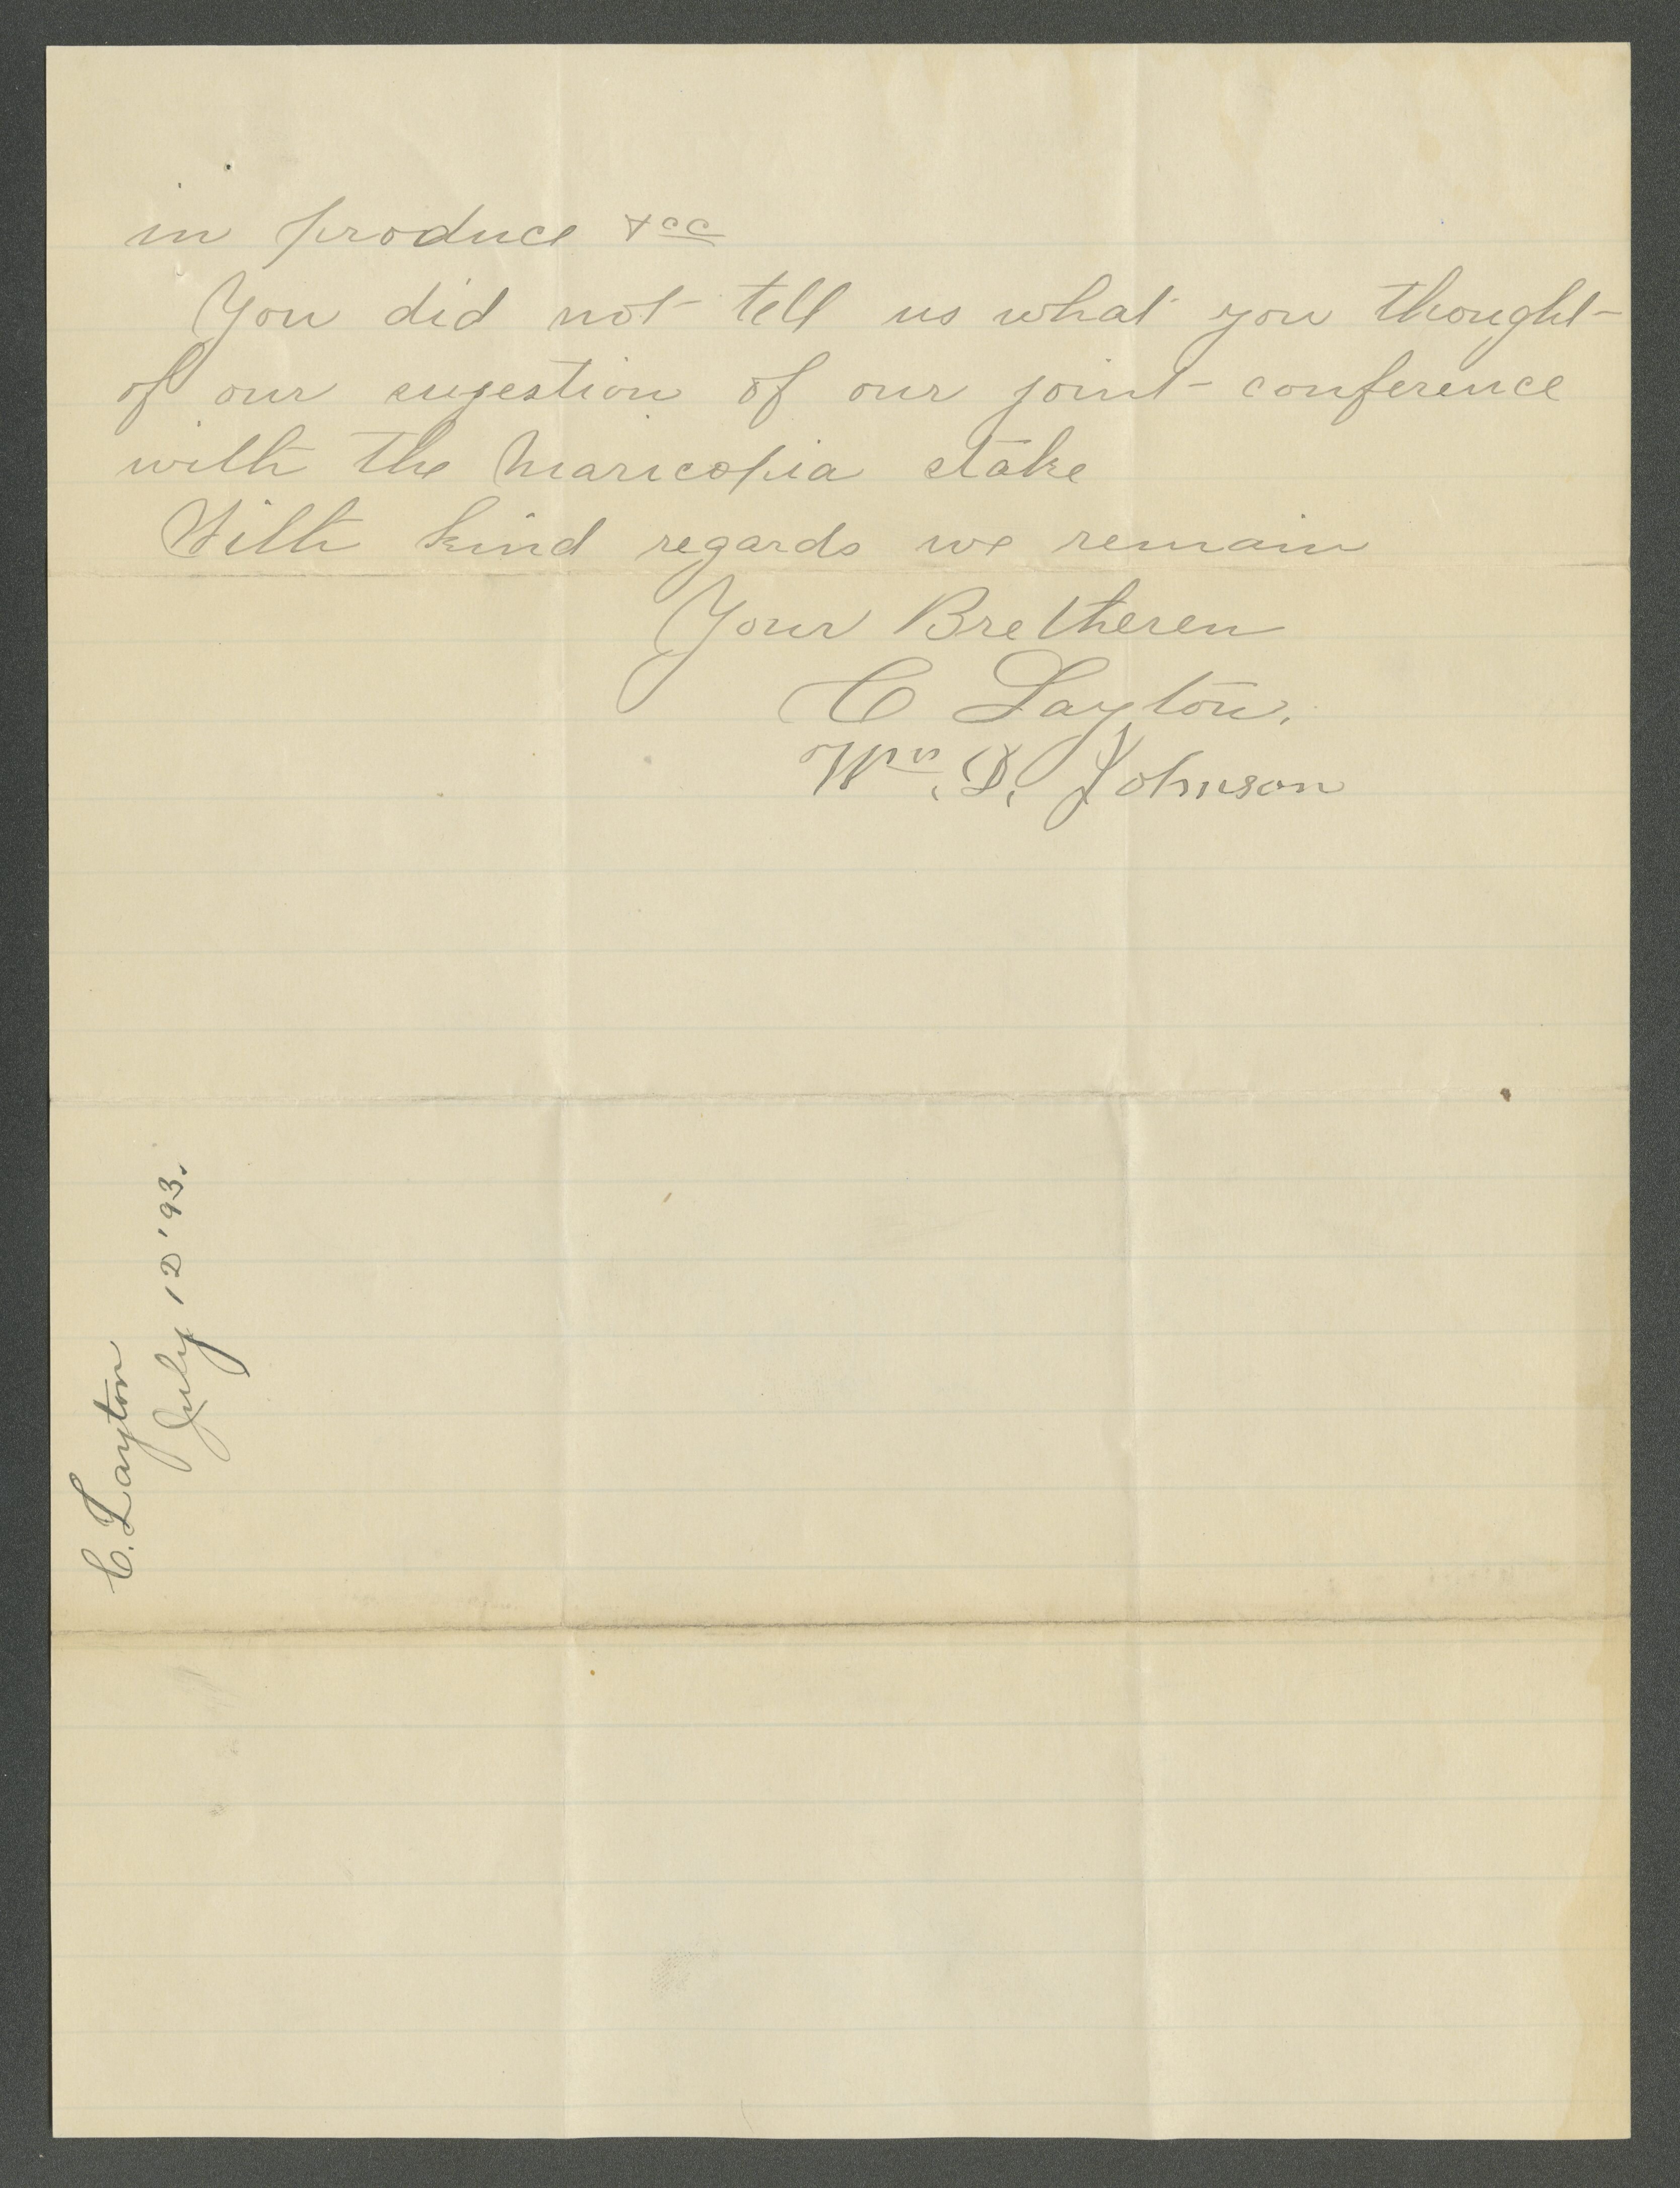 in produce &cc
You did not tell us what you thought
of our sugestion of our joint conference
with the Maricopia stake
With kind regards we remain
Your Bretheren
C Layton.
Wm. D. Johnson
C. Layton
July 12 '93.